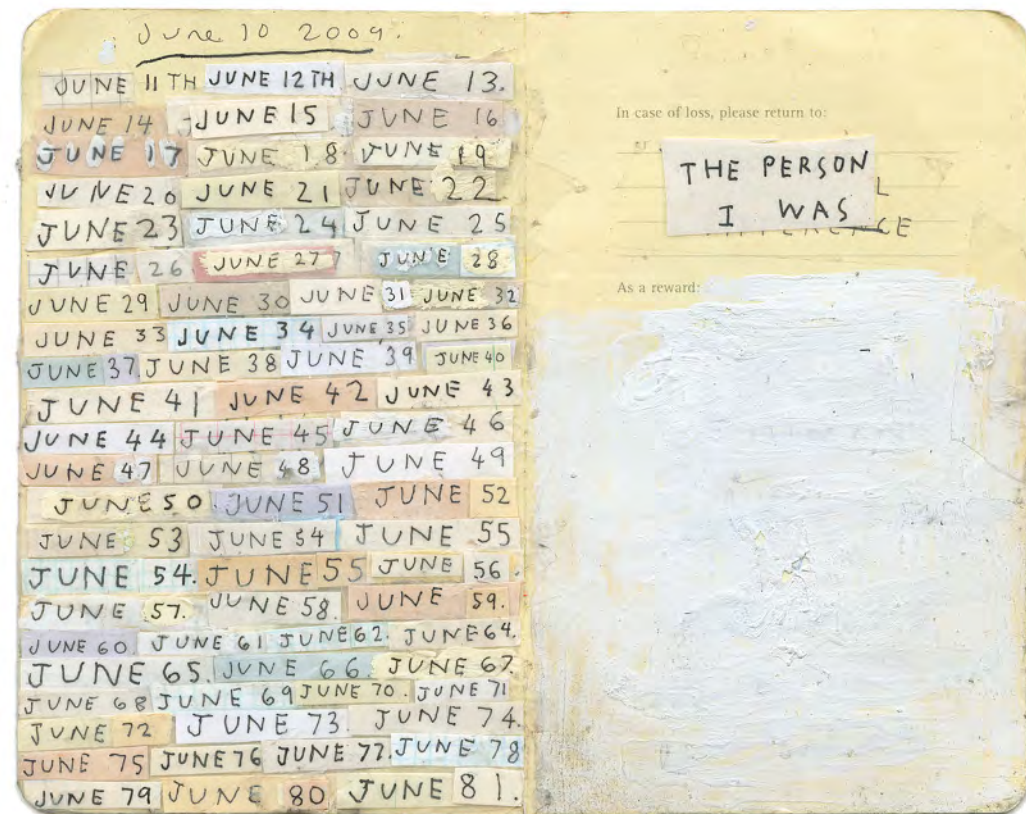 June 10 2009.
JUNE 11 TH JUNE 12 TH JUNE 13.
JUNE 14 JUNE 15 JUNE 16
JUNE 17 JUNE 18. JUNE 19
JUNE 20 JUNE 21 JUNE 22
JUNE 23 JUNE 24 JUNE 25
JUNE 26 JUNE 27 JUNE 28
JUNE 29 JUNE 30 JUNE 31 JUNE 32
JUNE 33 JUNE 34 JUNE 35 JUNE 36
JUNE 37 JUNE 38 JUNE 39 JUNE 40
JUNE 41 JUNE 42 JUNE 43
JUNE 44 JUNE 45 JUNE 46
JUNE 47 JUNE 48 JUNE 49
JUNE 50 JUNE 51 JUNE 52
JUNE 53 JUNE 54 JUNE 55
JUNE 54. JUNE 55 JUNE 56.
JUNE 57. JUNE 58. JUNE 59.
JUNE 60 JUNE 61 JUNE 62. JUNE 64.
JUNE 65. JUNE 66. JUNE 67.
JUNE 68 JUNE 69 JUNE 70. JUNE 71
JUNE 72 JUNE 73 JUNE 74.
JUNE 75 JUNE 76 JUNE 77. JUNE 78
JUNE 79 JUNE 80 JUNE 81.
In case of loss, please return to:
THE PERSON
I WAS
As a reward: